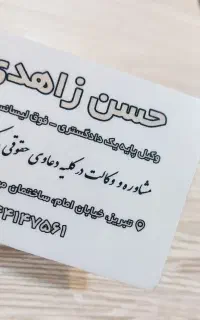 حسن زاهدی
وکیل پایه یک دادگستری - فوق لیسانس
مشاوره و وکالت در کلیه دعاوی حقوقی
تبریز، خیابان امام، ساختمان
۴۱۴۷۵۶۱